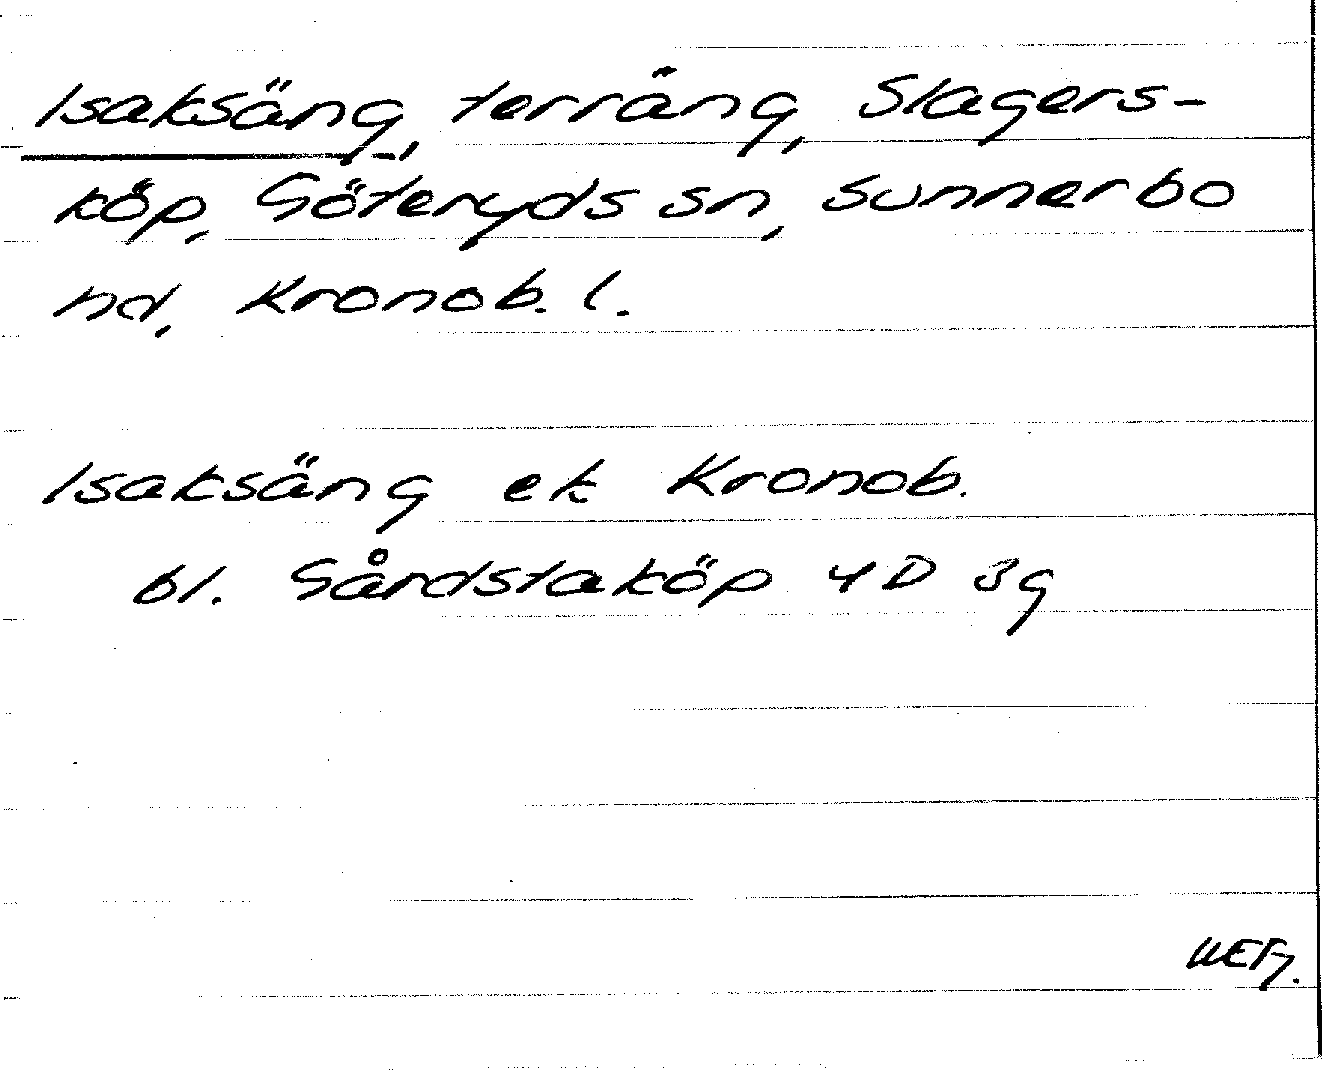 Isaksäng, terräng, Slagers-
köp, Göteryds sn, Sunnerbo
hd, Kronob. l.
Isaksäng ek Kronob.
bl. Gårdstaköp 4D 3g